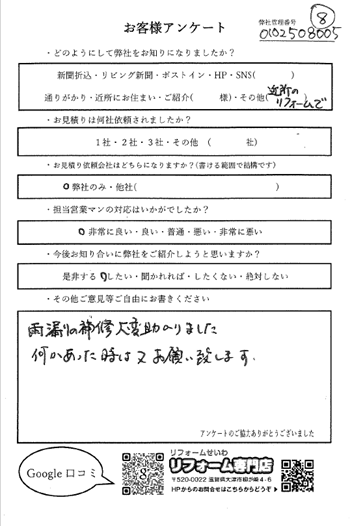 お客様アンケート
弊社管理番号 ⑧
0102508005
・どのようにして弊社をお知りになりましたか？
新聞折込・リビング新聞・ポストイン・HP・SNS( )
通りがかり・近所にお住まい・ご紹介( 様)・その他( 近所のリフォームで
・お見積りは何社依頼されましたか？
1社・2社・3社・その他 ( 社)
・お見積り依頼会社はどちらになりますか？(書ける範囲で結構です)
弊社のみ・他社( )
・担当営業マンの対応はいかがでしたか？
非常に良い・良い・普通・悪い・非常に悪い
・今後お知り合いに弊社をご紹介しようと思いますか？
是非する・したい・聞かれれば・したくない・絶対しない
・その他ご意見等ご自由にお書きください
雨漏りの補修大変助かりました
何かあった時は又お願い致します.
アンケートのご協力ありがとうございました
Google 口コミ
8
リフォームせいわ
リフォーム専門店
〒520-0022 滋賀県大津市柳が崎4-6
HPからのお問合せはこちらからどうぞ